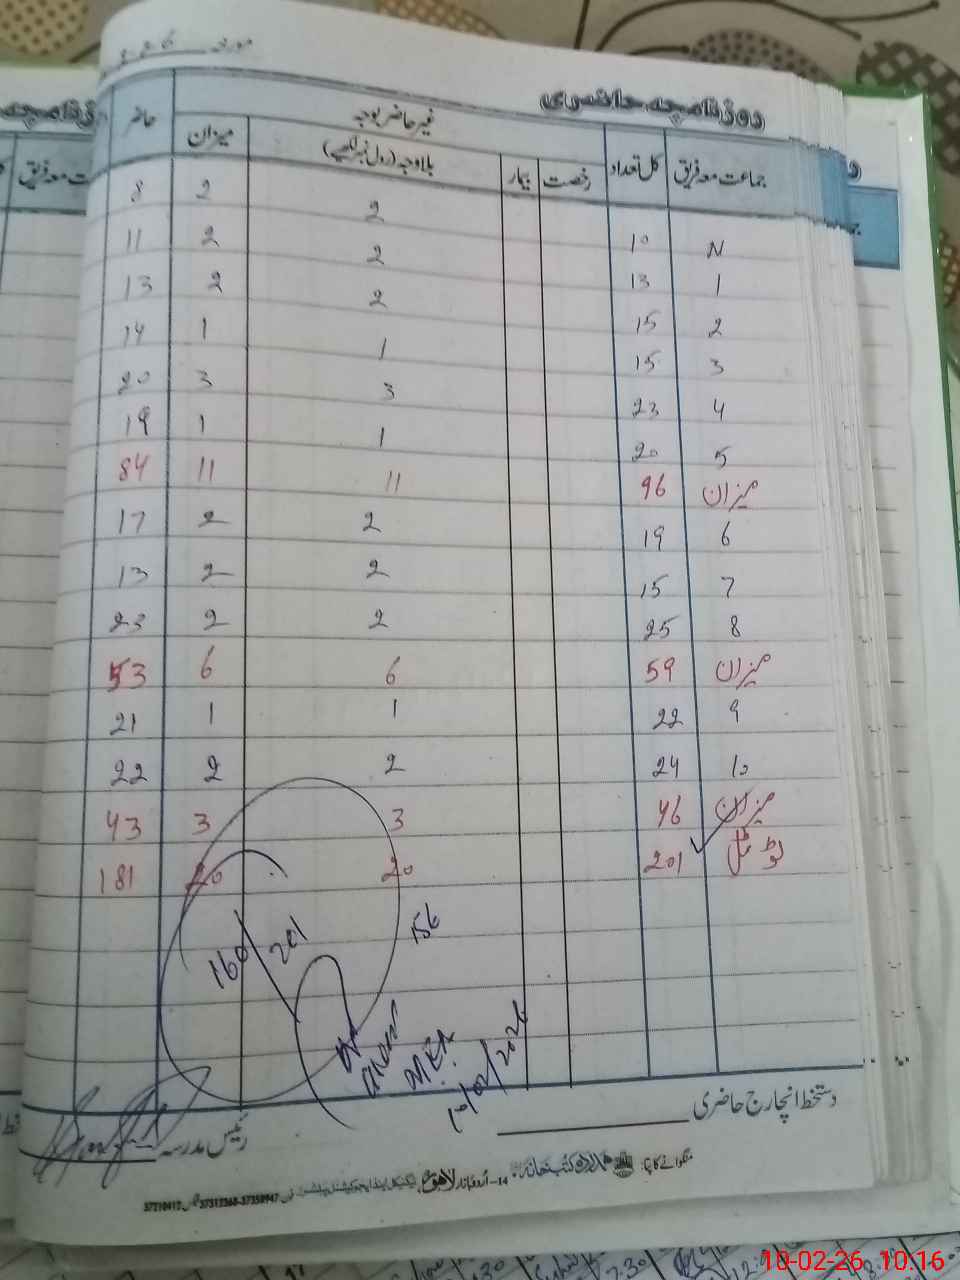 روزنامچہ حاضری
جماعت معہ فریق کل تعداد غیر حاضر بوجہ حاضر
رخصت بیمار بلاوجہ (رول نمبر لکھیے) میزان
N 10 2 2 8
1 13 2 2 11
2 15 2 2 13
3 15 1 1 14
4 23 3 3 20
5 20 1 1 19
میزان 96 11 11 84
6 19 2 2 17
7 15 2 2 13
8 25 2 2 23
میزان 59 6 6 53
9 22 1 1 21
10 24 2 2 22
میزان 46 3 3 43
ٹوٹل 201 20 20 181
156
160/201
10/02/2026
دستخط انچارج حاضری
رئیس مدرسہ
منگوانے کا پتہ: ہمدرد کتب خانہ
14-اُردو بازار لاہور
10-02-26 10:16